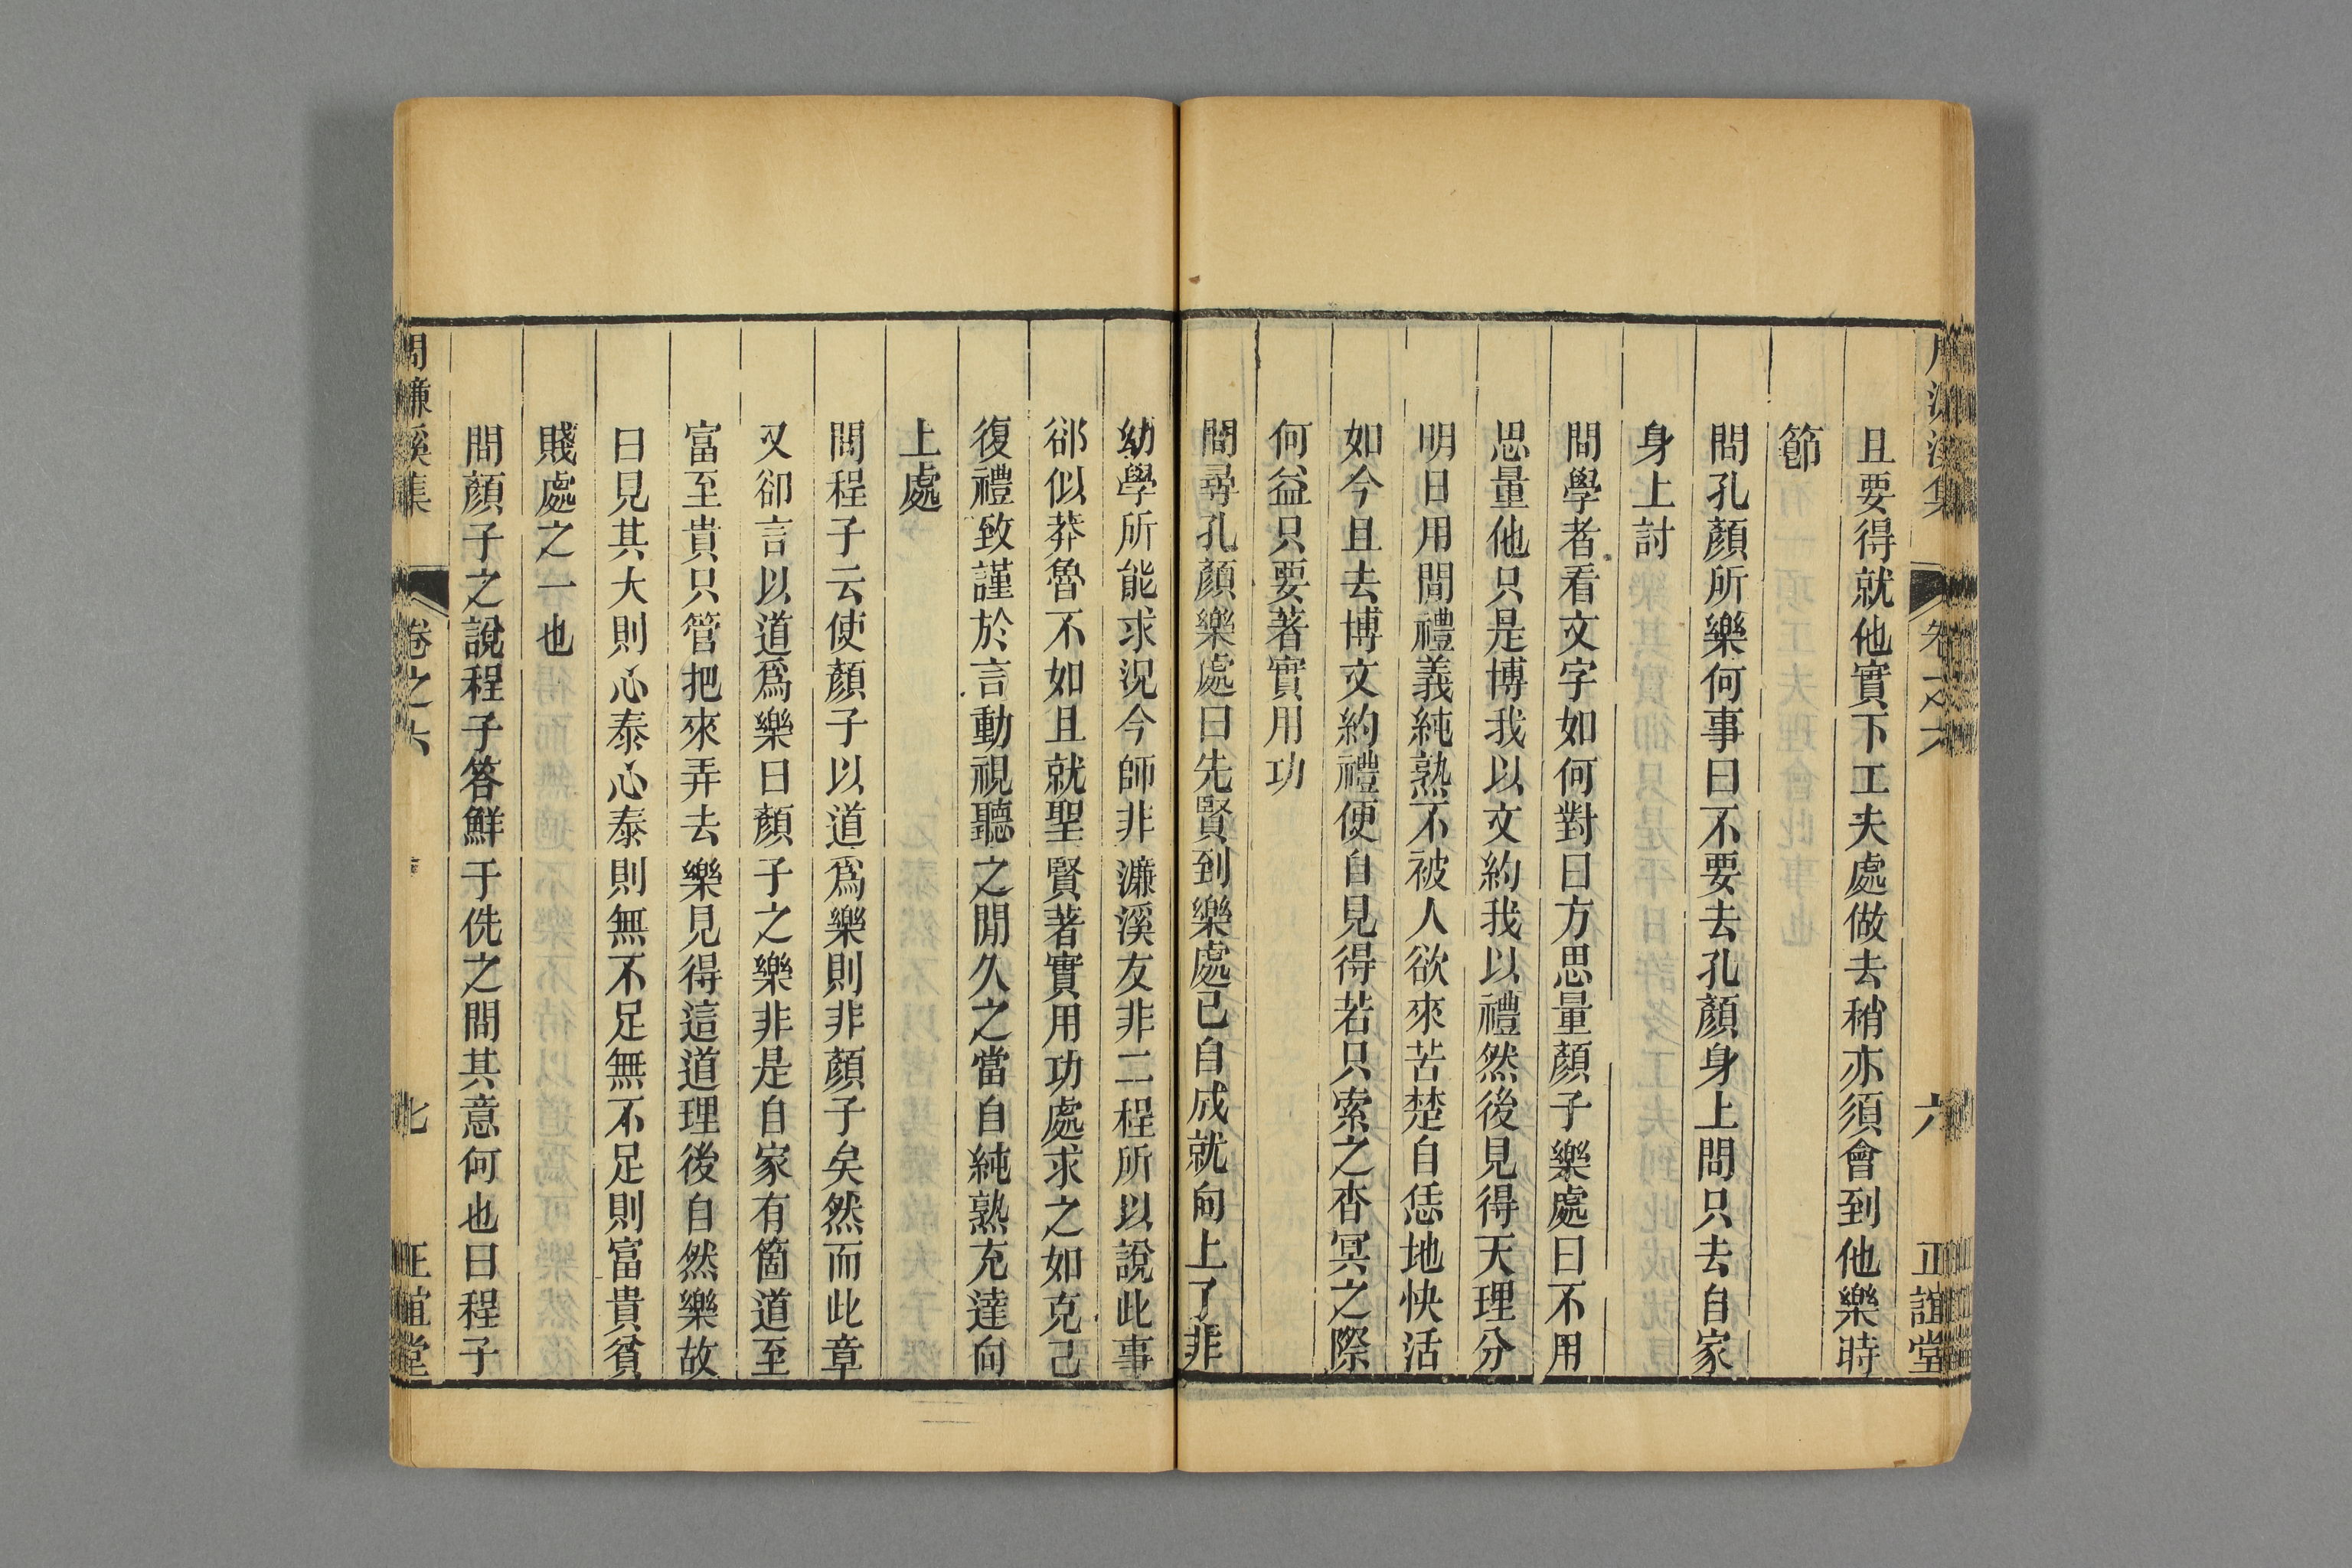 周濂溪集 卷之六 六 正誼堂
且要得就他實下工夫處做去稍亦須會到他樂時
節
問孔顏所樂何事曰不要去孔顏身上問只去自家
身上討
問學者看文字如何對曰方思量顏子樂處曰不用
思量他只是博我以文約我以禮然後見得天理分
明日用間禮義純熟不被人欲來苦楚自恁地快活
如今且去博文約禮便自見得若只索之杳冥之際
何益只要著實用功
問尋孔顏樂處曰先賢到樂處已自成就向上了非
幼學所能求況今師非濂溪友非二程所以說此事
郤似莽魯不如且就聖賢著實用功處求之如克己
復禮致謹於言動視聽之間久之當自純熟充達向
上處
問程子云使顏子以道爲樂則非顏子矣然而此章
又卻言以道爲樂曰顏子之樂非是自家有箇道至
富至貴只管把來弄去樂見得這道理後自然樂故
曰見其大則心泰心泰則無不足無不足則富貴貧
賤處之一也
問顏子之說程子答鮮于侁之問其意何也曰程子
周濂溪集 卷之六 七 正誼堂